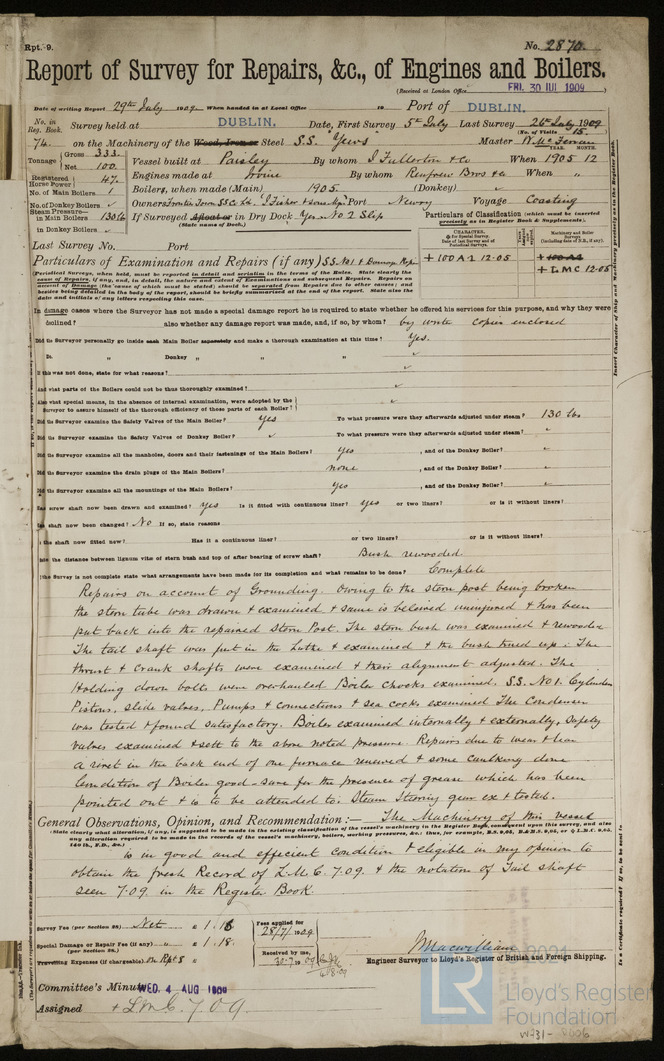 Rpt. 9.
No. 2870.
Report of Survey for Repairs, &c., of Engines and Boilers.
(Received at London Office FRI. 30 JUL 1909)
Date of writing Report 29th July 1909 When handed in at Local Office 19 Port of DUBLIN.
No. in Reg. Book. Survey held at DUBLIN. Date, First Survey 5th July Last Survey 26th July 1909
(No. of Visits 15.)
74. on the Machinery of the Wood, Iron or Steel S.S. "Yews" Master
Tonnage Gross 333. Net 100. Vessel built at Paisley By whom J Fullerton & Co When 1905 12
YEAR. MONTH.
Registered Horse Power 47. Engines made at Irvine By whom Renfrew Bros & Co When "
No. of Main Boilers 1 Boilers, when made (Main) 1905. (Donkey) ✓
No. of Donkey Boilers ✓ Owners Frontier Town SS Co Ld. J Fisher & Sons Mgrs Port Newry Voyage Coasting
Steam Pressure in Main Boilers 130 lb If Surveyed Afloat or in Dry Dock Yes No 2 Slip
(State name of Dock.)
in Donkey Boilers ✓
Particulars of Classification (which must be inserted precisely as in Register Book & Supplements).
CHARACTER. Machinery and Boiler Surveys (including date of N.B., if any).
+ 100 A1 12.05 + 100 A1
+ L.M.C 12.05
Last Survey No. Port
Particulars of Examination and Repairs (if any) S.S. No 1 & Damage Rep
(Periodical Surveys, when held, must be reported in detail and seriatim in the terms of the Rules. State clearly the
cause of Repairs, if any, and, in detail, the nature and extent of Examinations and Repairs. Repairs on
account of Damage (the cause of which must be stated) should be separated from Repairs due to other causes; and
besides being detailed in the body of the report, should be briefly summarised at the end of the report. State also the
date and initials of any letters respecting this case.
In damage cases where the Surveyor has not made a special damage report he is required to state whether he offered his services for this purpose, and why they were
declined? also whether any damage report was made, and, if so, by whom? by wrote copies enclosed
Did the Surveyor personally go inside each Main Boiler separately and make a thorough examination at this time? Yes.
Do. " Donkey " " " ✓
If this was not done, state for what reasons? ✓
And what parts of the Boilers could not be thoroughly examined? ✓
Also what special means, in the absence of internal examination, were adopted by the
Surveyor to assure himself of the thorough efficiency of those parts of each Boiler? ✓
Did the Surveyor examine the Safety Valves of the Main Boiler? Yes To what pressure were they afterwards adjusted under steam? 130 lbs
Did the Surveyor examine the Safety Valves of Donkey Boiler? ✓ To what pressure were they afterwards adjusted under steam? "
Did the Surveyor examine all the manholes, doors and their fastenings of the Main Boilers? Yes , and of the Donkey Boiler? "
Did the Surveyor examine the drain plugs of the Main Boilers? none , and of the Donkey Boiler? "
Did the Surveyor examine all the mountings of the Main Boilers? Yes , and of the Donkey Boiler? "
Has screw shaft now been drawn and examined? Yes Is it fitted with continuous liner? Yes or two liners? or is it without liners?
Has shaft now been changed? No If so, state reasons
Is the shaft now fitted new? Has it a continuous liner? or two liners? or is it without liner?
State the distance between lignum vitæ of stern bush and top of after bearing of screw shaft? Bush rewooded.
If the Survey is not complete state what arrangements have been made for its completion and what remains to be done? Complete
Repairs on account of Grounding. Owing to the stern post being broken
the stern tube was drawn & examined & same is believed uninjured & has been
put back into the repaired Stern Post. The stern bush was examined & rewooded
The tail shaft was put in the Lathe & examined & the bush trued up. The
thrust & crank shafts were examined & their alignment adjusted. The
Holding down bolts were overhauled Boiler chocks examined. S.S. No 1. Cylinders
Pistons, slide valves, Pumps & connections & sea cocks examined The Condenser
was tested & found satisfactory. Boiler examined internally & externally, Safety
valves examined & sett to the above noted pressure. Repairs due to wear & tear
A rivet in the back end of one furnace renewed & some caulking done
Condition of Boiler good - save for the presence of grease which has been
pointed out & is to be attended to. Steam Steering gear ex & tested.
General Observations, Opinion, and Recommendation:— The Machinery of this vessel
(State clearly what alteration, if any, is suggested to be made in the existing classification of the vessel's machinery in the Register Book, consequent upon this survey, and also
any alteration required to be made in the records of the vessel's machinery, boilers, working pressures, &c.; thus, for example, B.S. 9,05, B.&M.S. 9,05, or + L.M.C. 9,05,
140 lb., F.D., &c.)
is in good and efficient condition & eligible in my opinion to
obtain the fresh Record of L.M.C. 7.09. & the notation of Tail shaft
seen 7.09. in the Register Book.
Survey Fee (per Section 28) Net £ 1.
Special Damage or Repair Fee (if any) (per Section 28.) £ 1.18.
Travelling Expenses (if chargeable) in Rpt 8 £
Fees applied for 28/7/1909
Received by me, 30.7.1909
J Macwilliam
Engineer Surveyor to Lloyd's Register of British and Foreign Shipping.
Committee's Minute WED. 4 AUG 1909
Assigned + LMC 7.09.
© 2021
LR
Lloyd's Register
Foundation
W-31-0006
Insert Character of Ship and Machinery precisely as in the Register Book.
Is a Certificate required? If so, to be sent to